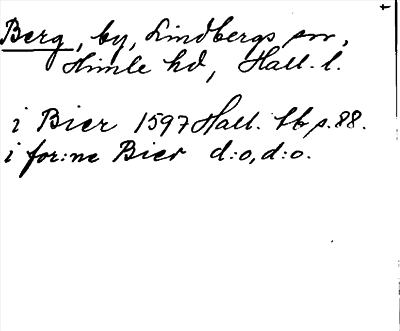 Berg, by, Lindbergs sn,
Himle hd, Hall. l.
i Bier 1597 Hall. lb p. 88.
i for:ne Bier d:o, d:o.